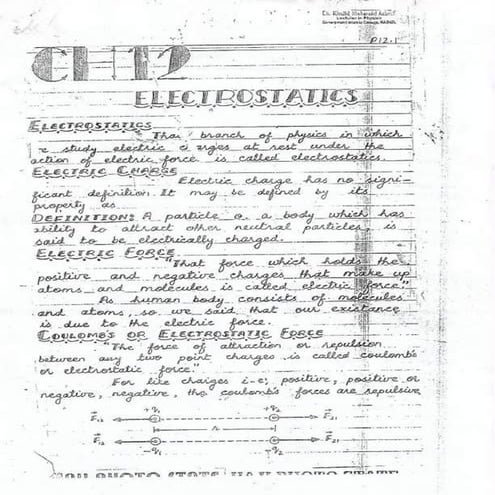 Dr. Khalid Mehmood
Lecturer in Physics
Government Islamia College,
P12.1
CH 12
ELECTROSTATICS
ELECTROSTATICS
The branch of physics in which
we study electric charges at rest under the
action of electric force is called electrostatics.
ELECTRIC CHARGE
Electric charge has no signi-
ficant definition. It may be defined by its
property as
DEFINITION: A particle or a body which has
ability to attract other neutral particles, is
said to be electrically charged.
ELECTRIC FORCE
"That force which holds the
positive and negative charges that make up
atoms and molecules is called electric force."
As human body consists of molecules
and atoms, so we said that our existance
is due to the electric force.
COULOMB'S OR ELECTROSTATIC FORCE
"The force of attraction or repulsion
between any two point charges is called coulomb's
or electrostatic force."
For like charges i-e; positive, positive or
negative, negative, the coulomb's forces are repulsive
+q₁ +q₂
F₁₂ F₂₁
r
F₁₂ F₂₁
-q₁ -q₂